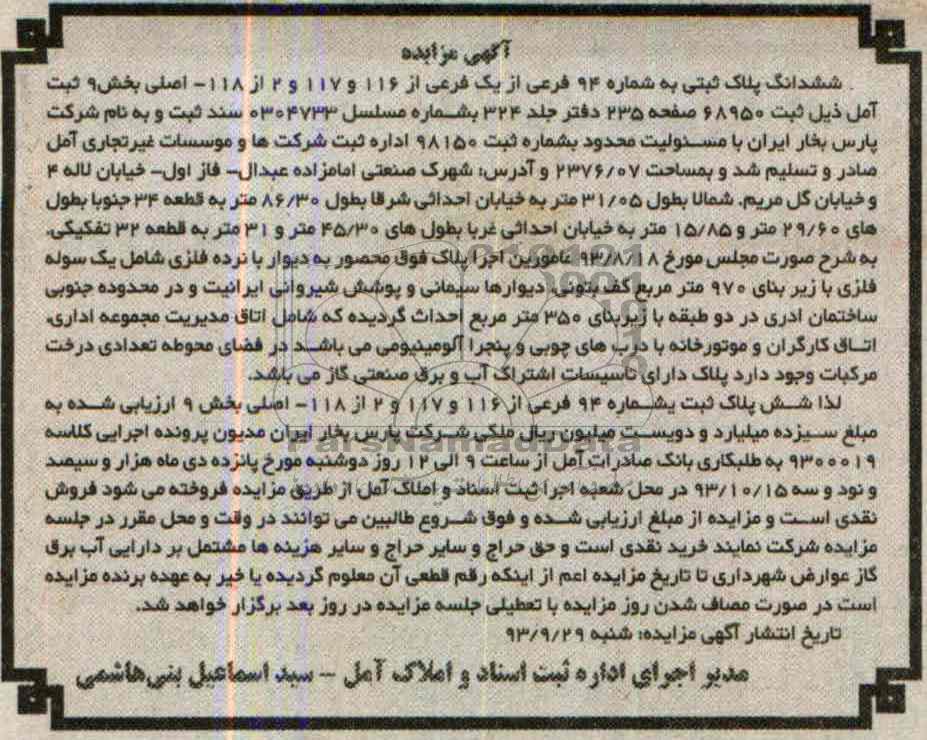 آگهی مزایده
ششدانگ پلاک ثبتی به شماره ۹۴ فرعی از یک فرعی از ۱۱۶ و ۱۱۷ و ۲ از ۱۱۸- اصلی بخش۹ ثبت
آمل ذیل ثبت ۶۸۹۵۰ صفحه ۲۳۵ دفتر جلد ۳۲۴ بشماره مسلسل ۰۳۰۴۷۳۳ سند ثبت و به نام شرکت
پارس بخار ایران با مسئولیت محدود بشماره ثبت ۹۸۱۵۰ اداره ثبت شرکت ها و موسسات غیرتجاری آمل
صادر و تسلیم شد و بمساحت ۲۳۷۶/۰۷ و آدرس: شهرک صنعتی امامزاده عبدال- فاز اول- خیابان لاله ۴
و خیابان گل مریم. شمالا بطول ۳۱/۰۵ متر به خیابان احداثی شرقا بطول ۸۶/۳۰ متر به قطعه ۳۴ جنوبا بطول
های ۲۹/۶۰ متر و ۱۵/۸۵ متر به خیابان احداثی غربا بطول های ۴۵/۳۰ متر و ۳۱ متر به قطعه ۳۲ تفکیکی.
به شرح صورت مجلس مورخ ۹۳/۸/۱۸ مامورین اجرا پلاک فوق محصور به دیوار با نرده فلزی شامل یک سوله
فلزی با زیر بنای ۹۷۰ متر مربع کف بتونی. دیوارها سیمانی و پوشش شیروانی ایرانیت و در محدوده جنوبی
ساختمان ادری در دو طبقه با زیربنای ۳۵۰ متر مربع احداث گردیده که شامل اتاق مدیریت مجموعه اداری.
اتاق کارگران و موتورخانه با درب های چوبی و پنجرا آلومینیومی می باشد در فضای محوطه تعدادی درخت
مرکبات وجود دارد پلاک دارای تاسیسات اشتراک آب و برق صنعتی گاز می باشد.
لذا شش پلاک ثبت یشماره ۹۴ فرعی از ۱۱۶ و ۱۱۷ و ۲ از ۱۱۸- اصلی بخش ۹ ارزیابی شده به
مبلغ سیزده میلیارد و دویست میلیون ریال ملکی شرکت پارس بخار ایران مدیون پرونده اجرایی کلاسه
۹۳۰۰۰۱۹ به طلبکاری بانک صادرات آمل از ساعت ۹ الی ۱۲ روز دوشنبه مورخ پانزده دی ماه هزار و سیصد
و نود و سه ۹۳/۱۰/۱۵ در محل شعبه اجرا ثبت اسناد و املاک آمل از طریق مزایده فروخته می شود فروش
نقدی است و مزایده از مبلغ ارزیابی شده و فوق شروع طالبین می توانند در وقت و محل مقرر در جلسه
مزایده شرکت نمایند خرید نقدی است و حق حراج و سایر حراج و سایر هزینه ها مشتمل بر دارایی آب برق
گاز عوارض شهرداری تا تاریخ مزایده اعم از اینکه رقم قطعی آن معلوم گردیده یا خیر به عهده برنده مزایده
است در صورت مصاف شدن روز مزایده با تعطیلی جلسه مزایده در روز بعد برگزار خواهد شد.
تاریخ انتشار آگهی مزایده: شنبه ۹۳/۹/۲۹
مدیر اجرای اداره ثبت اسناد و املاک آمل - سید اسماعیل بنی‌هاشمی
ParsNamadData